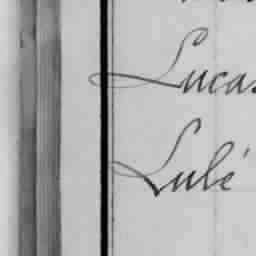 Lucas
Lulé